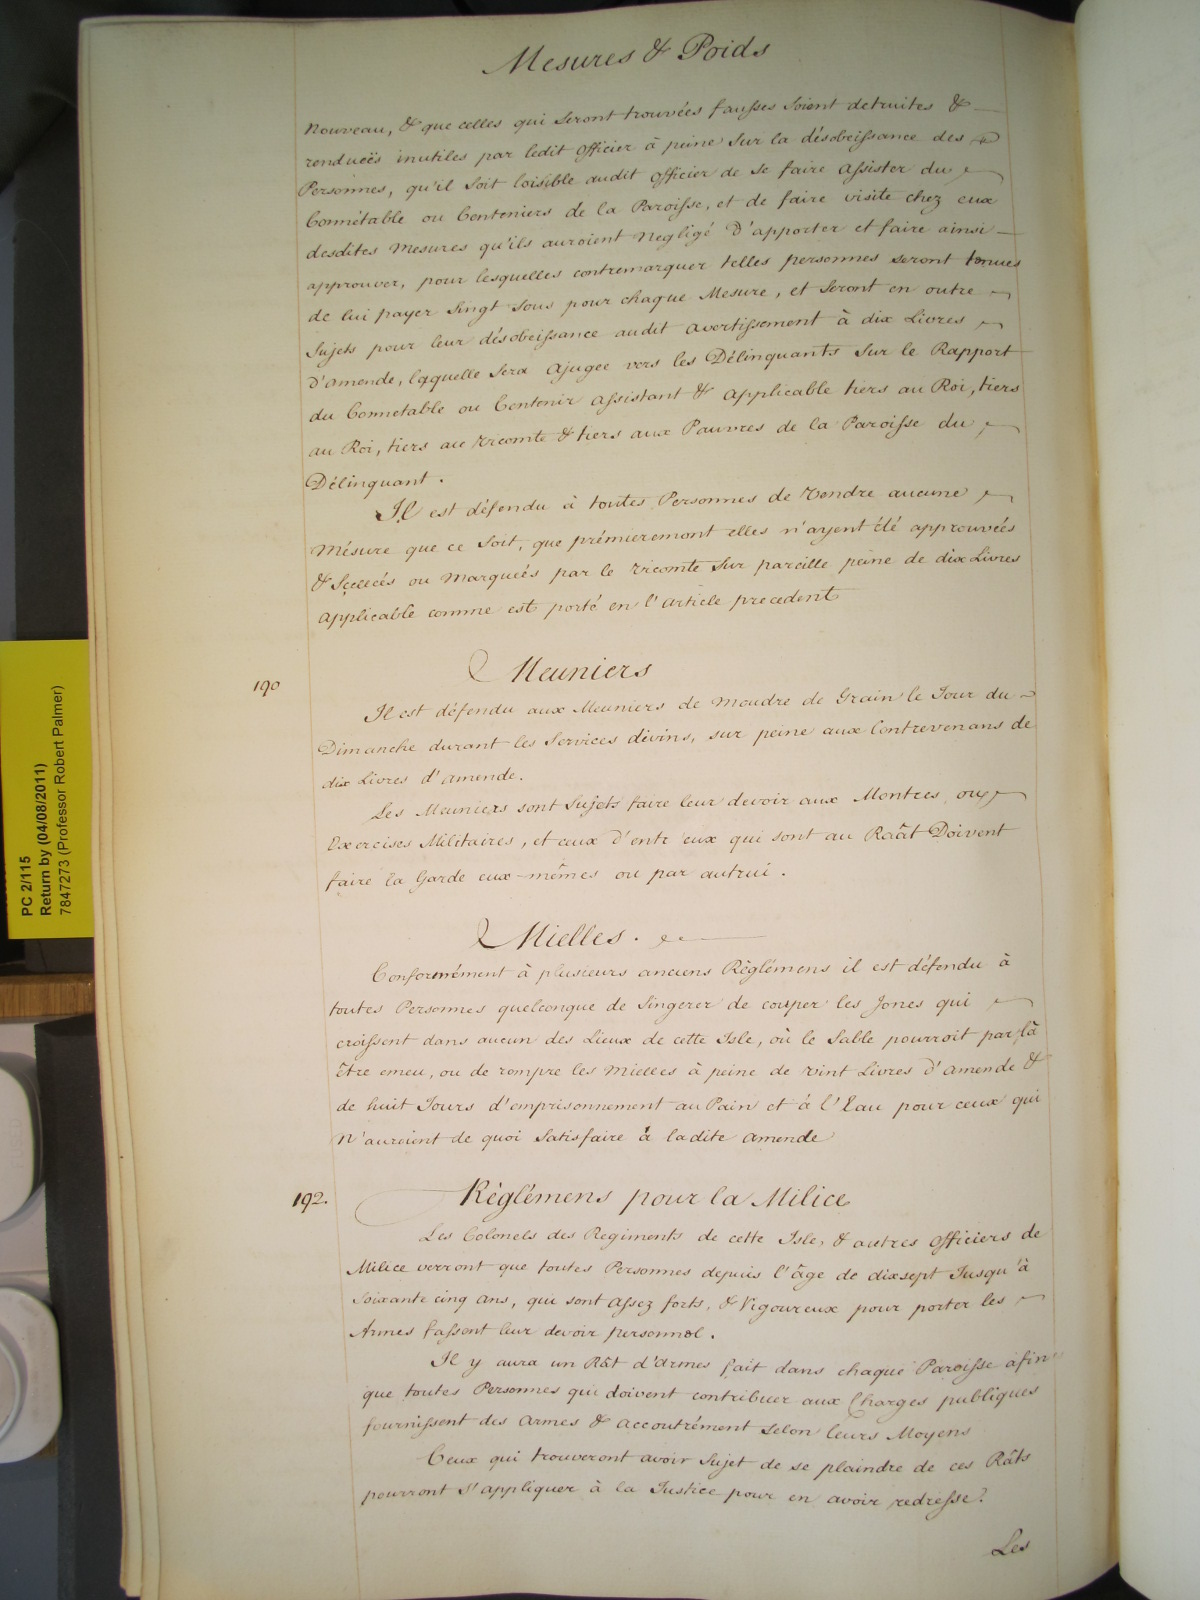 Mesures & Poids
Nouveau, & que celles qui Seront trouvées fausses Soient detruites &
renduëes inutiles par ledit Officier à peine Sur la désobeissance des
Personnes, qu'il Soit loisible audit Officier de se faire Assister du
Connétable ou Centeniers de la Paroisse, et de faire visite chez eux
desdites Mesures qu'ils auroient Negligé D'apporter et faire ainsi
approuver, pour lesquelles contremarquer telles personnes seront tenues
de lui payer Singt Sous pour chaque Mesure, et Seront en outre
Sujets pour leur désobeissance audit Avertissement à dix Livres
D'amende, laquelle Sera Ajugee vers les Délinquants Sur le Rapport
du Connetable ou Centenir Assistant & Applicable tiers au Roi, tiers
au Roi, tiers au Vicomte & tiers aux Pauvres de la Paroisse du
Délinquant.
Il est défendu à toutes Personnes de Vendre aucune
Mésure que ce Soit, que prémierement elles n'ayent été approuvées
& Scellés ou Marqueés par le Vicomte Sur pareille peine de dix Livres
Applicable comme est porté en l'article precedent
190
Meuniers
Il est défendu aux Meuniers de Moudre de Grain le Jour du
Dimanche durant les Services divins, sur peine aux Contrevenans de
dix Livres d'amende.
Les Meuniers sont Sujets faire leur devoir aux Montres ou
Exercises Militaires, et ceux d'entr'eux qui sont au Raât Doivent
faire la Garde eux-mêmes ou par autrui.
Mielles.
Conformément à plusieurs anciens Règlémens il est défendu à
toutes Personnes quelconque de Singerer de couper les Jones qui
croissent dans aucun des Lieux de cette Isle, où le Sable pourroit par là
être emeu, ou de rompre les Mielles à peine de vint Livres d'Amende &
de huit Jours d'emprisonnement au Pain et à l'Eau pour ceux qui
N'auroient de quoi Satisfaire à ladite Amende
192.
Règlémens pour la Milice
Les Colonels des Regiments de cette Isle, & autres Officiers de
Milice verront que toutes Personnes depuis l'âge de dixsept Jusqu'à
Soixante cinq ans, qui sont Assez forts, & Vigoureux pour porter les
Armes fassent leur devoir personnel.
Il y aura un Rât d'Armes fait dans chaque Paroisse afin
que toutes Personnes qui doivent contribuer aux Charges publiques
fournissent des Armes & Accoutrément Selon leurs Moyens
Ceux qui trouveront avoir Sujet de se plaindre de ces Râts
pourront S'appliquer à la Justice pour en avoir redresse.
Les
PC 2/115
Return by (04/08/2011)
7847273 (Professor Robert Palmer)